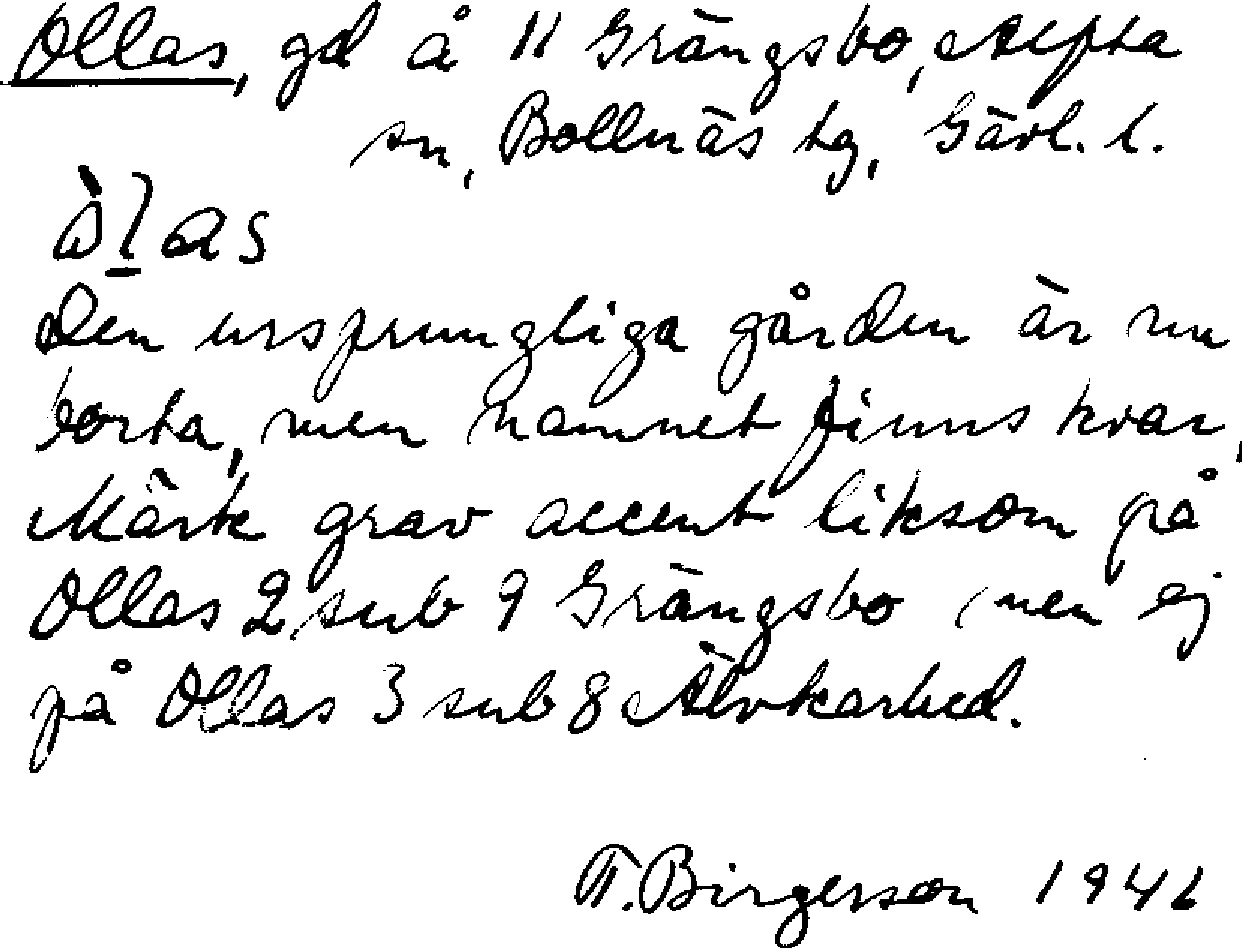 Ollas, gd å 11 Grängsbo, Alfta
sn, Bollnäs tg, Gävl. l.
Den ursprungliga gården är nu
borta, men namnet finns kvar.
Märk grav accent liksom på
Ollas 2 sub 9 Grängsbo men ej
på Ollas 3 sub 8 Älvkarhed.
T. Birgerson 1946